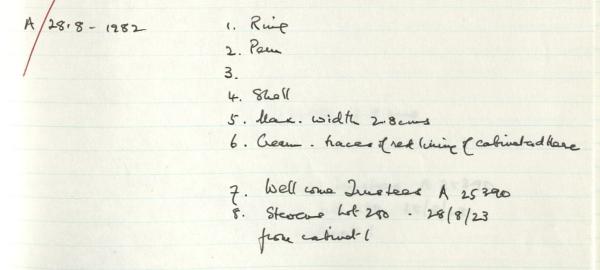 A/28.8-1982
1. Ring
2. Peru
3.
4. Shell
5. Max. width 2.8cms
6. Cream. traces of red lining of cabinet adhere
7. Wellcome Trustees A 25390
8. Stevens Lot 280 . 28/8/23
from cabinet 1